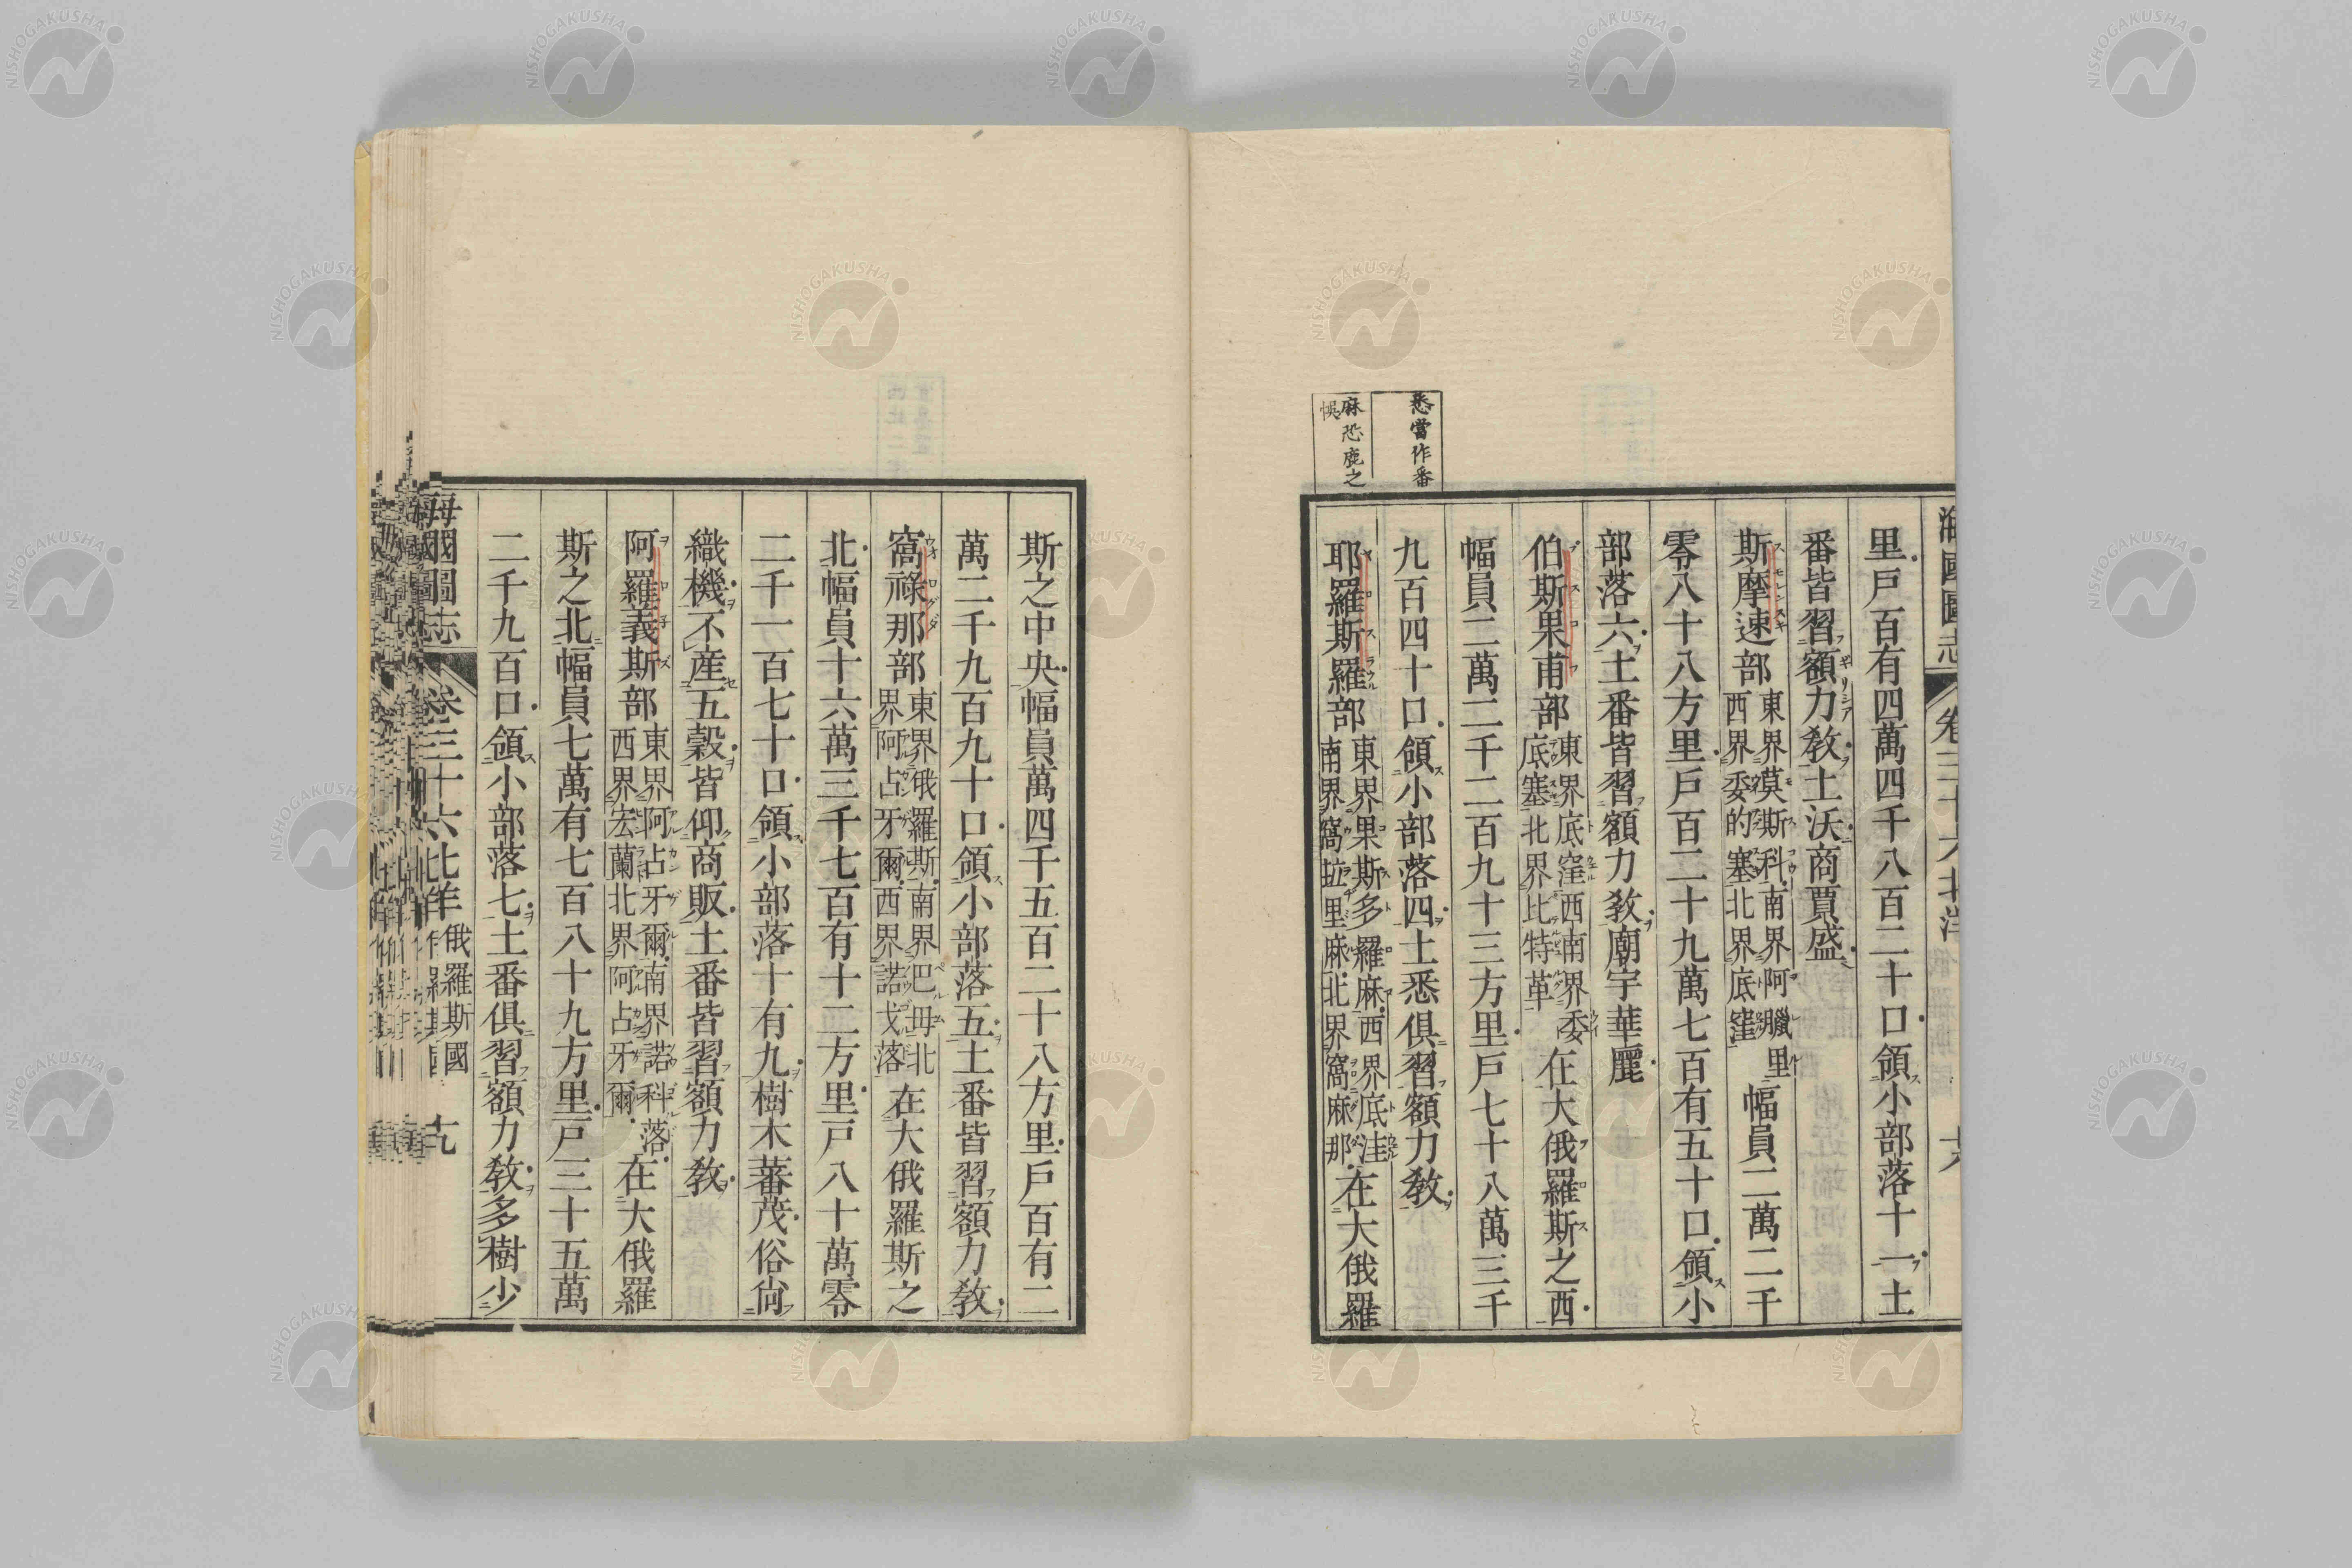 海國圖志 卷三十六 北洋
里戸百有四萬四千八百二十口領小部落十一土
番皆習額力教土沃商賈盛
斯摩速部東界莫斯科南界阿臘里西界委的塞北界底窪幅員二萬二千
零八十八方里戸百二十九萬七百有五十口領小
部落六土番皆習額力教廟宇華麗
伯斯果甫部東界底窪西南界委底塞北界比特革在大俄羅斯之西
幅員二萬二千二百九十三方里戸七十八萬三千
九百四十口領小部落四土悉俱習額力教
耶羅斯羅部東界果斯多羅麻西界底洼南界窩拉里麻北界窩麻那在大俄羅
悉當作番
麻恐鹿之
悞
斯之中央幅員萬四千五百二十八方里戸百有二
萬二千九百九十口領小部落五土番皆習額力教
窩祿那部東界俄羅斯南界巴毋北界阿占牙爾西界諾戈落在大俄羅斯之
北幅員十六萬三千七百有十二方里戸八十萬零
二千一百七十口領小部落十有九樹木蕃茂俗尙
織機不産五穀皆仰商販土番皆習額力教
阿羅義斯部東界阿占牙爾南界諾科落西界宏蘭北界阿占牙爾在大俄羅
斯之北幅員七萬有七百八十九方里戸三十五萬
二千九百口領小部落七土番俱習額力教多樹少
海國圖志 卷三十六 北洋 俄羅斯國 十九
NISHOGAKUSHA